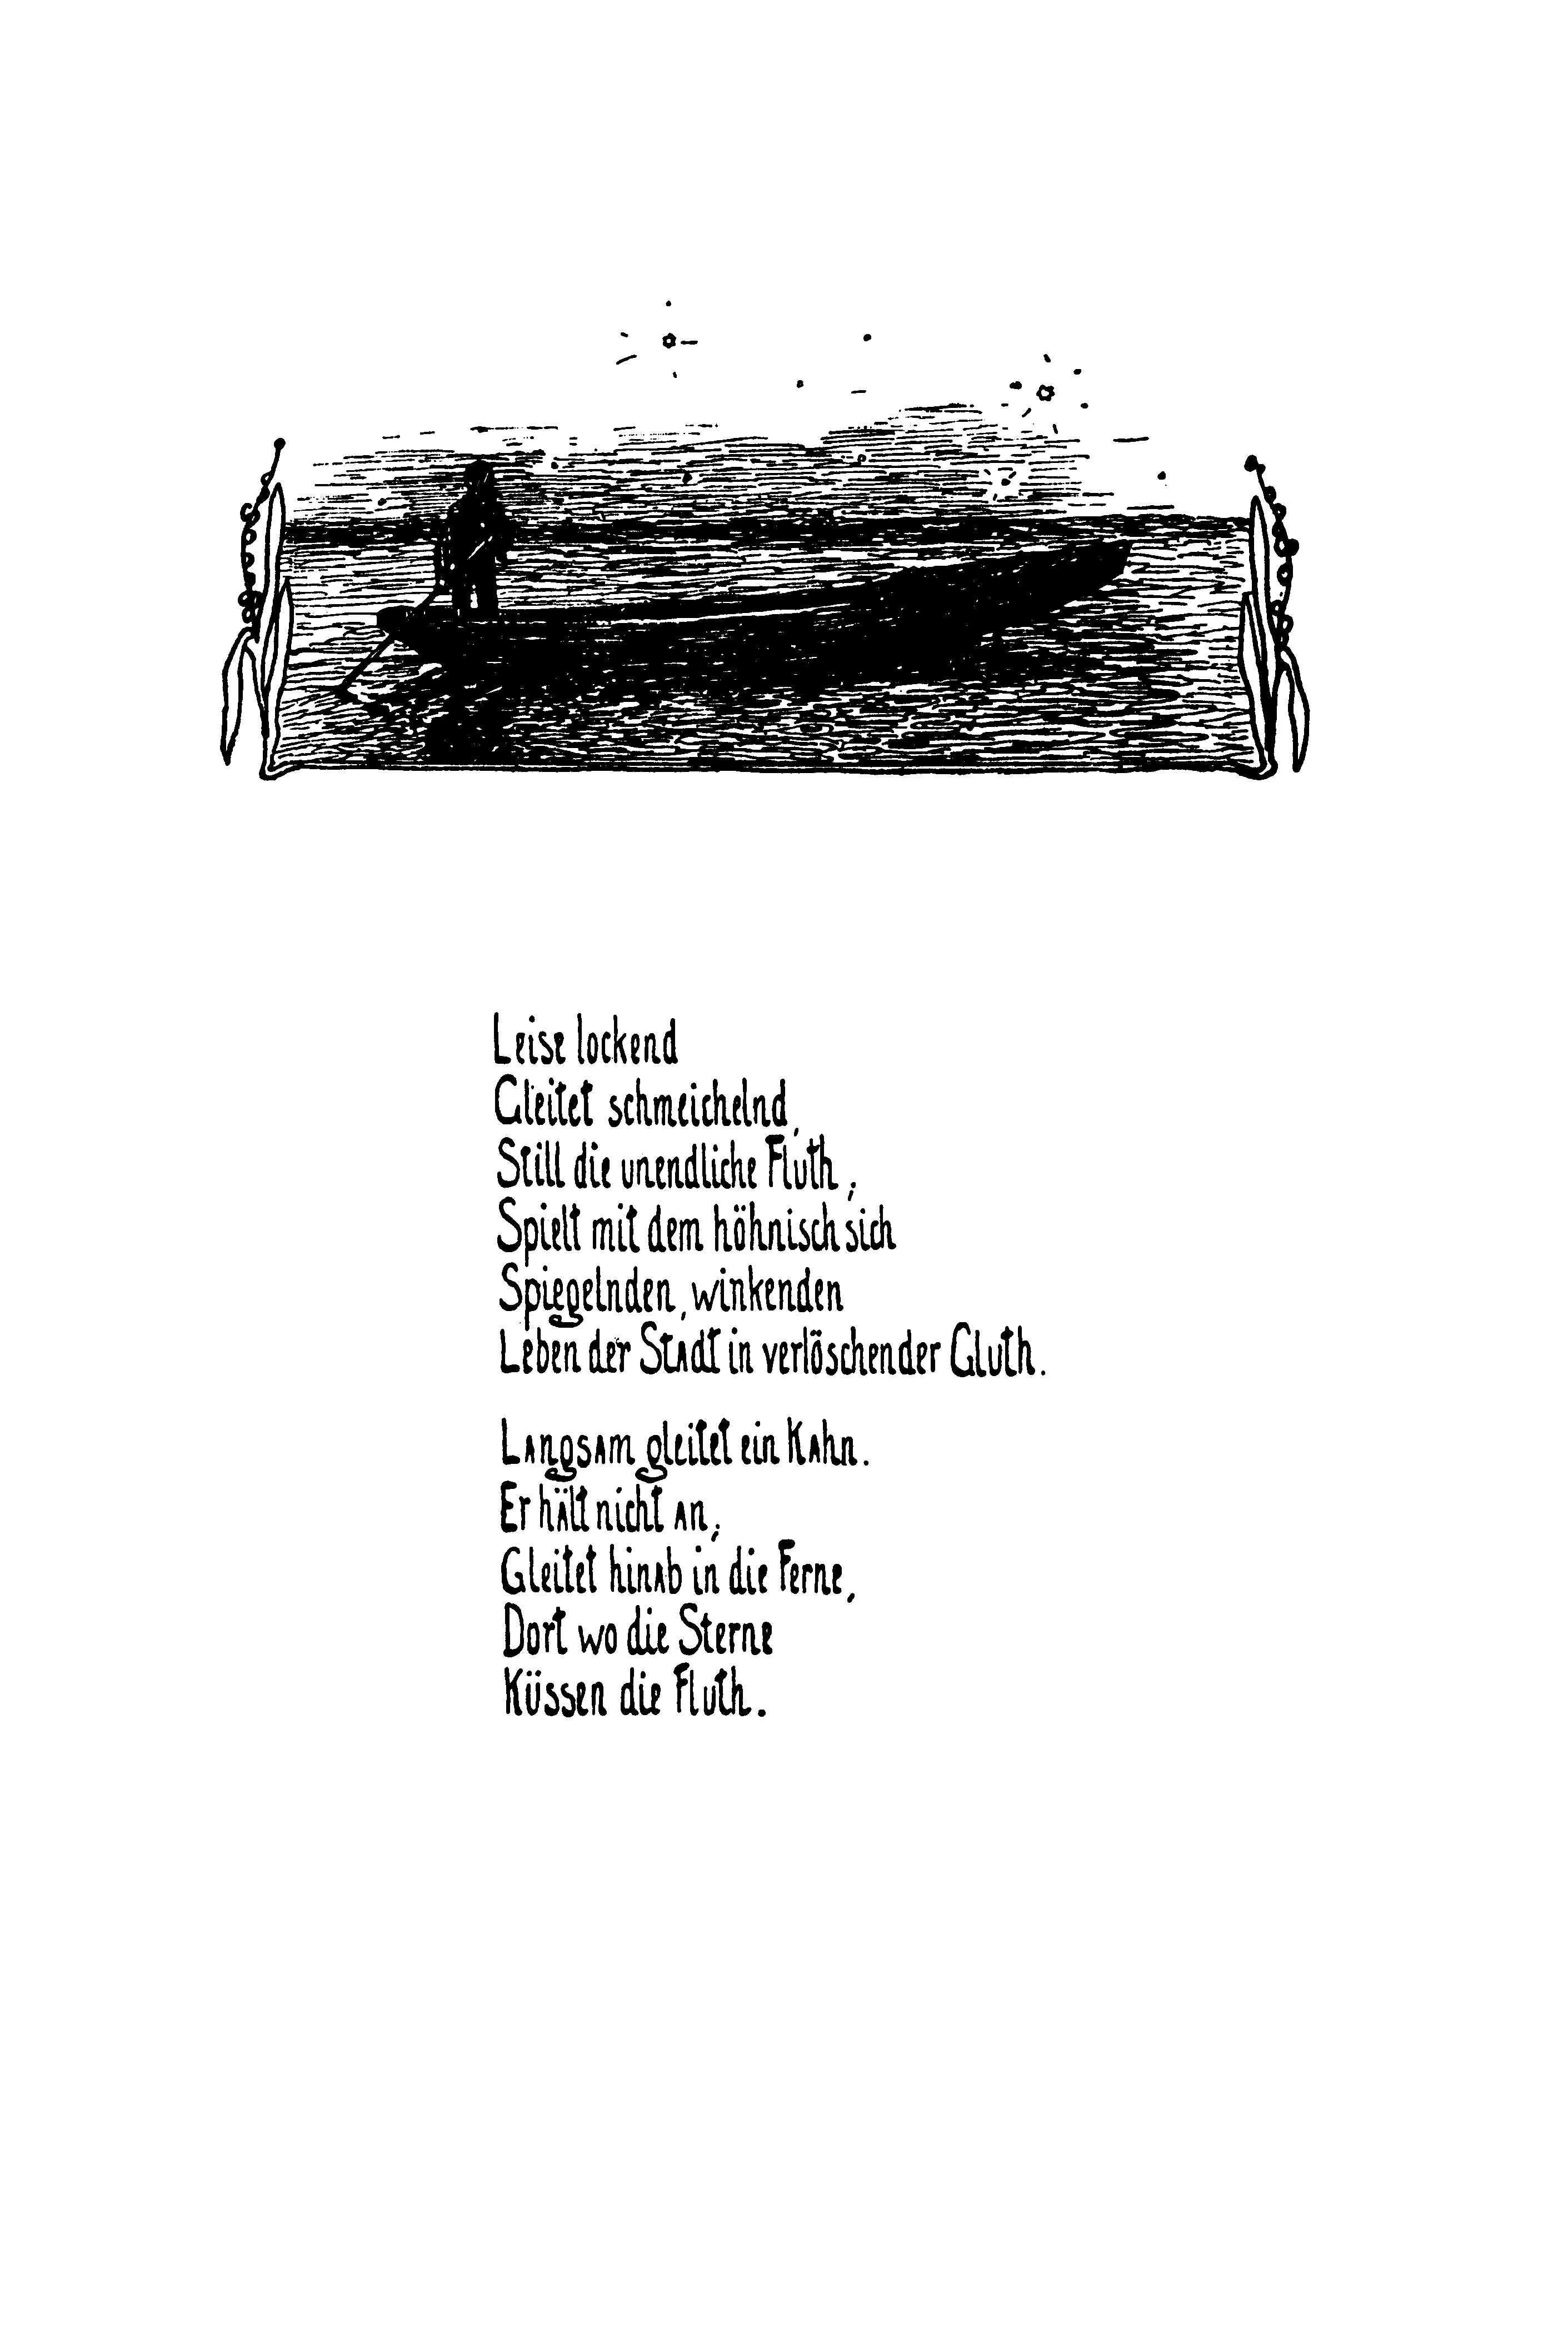 Leise lockend
Gleitet schmeichelnd,
Still die unendliche Fluth;
Spielt mit dem höhnisch sich
Spiegelnden, winkenden
Leben der Stadt in verlöschender Gluth.
Langsam gleitet ein Kahn.
Er hält nicht an;
Gleitet hinab in die Ferne,
Dort wo die Sterne
Küssen die Fluth.